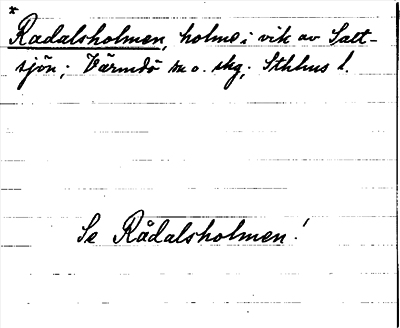 *
Radalsholmen, holme i vik av Salt-
sjön; Värmdö sn o. skg; Sthlms l.
Se Rådalsholmen!